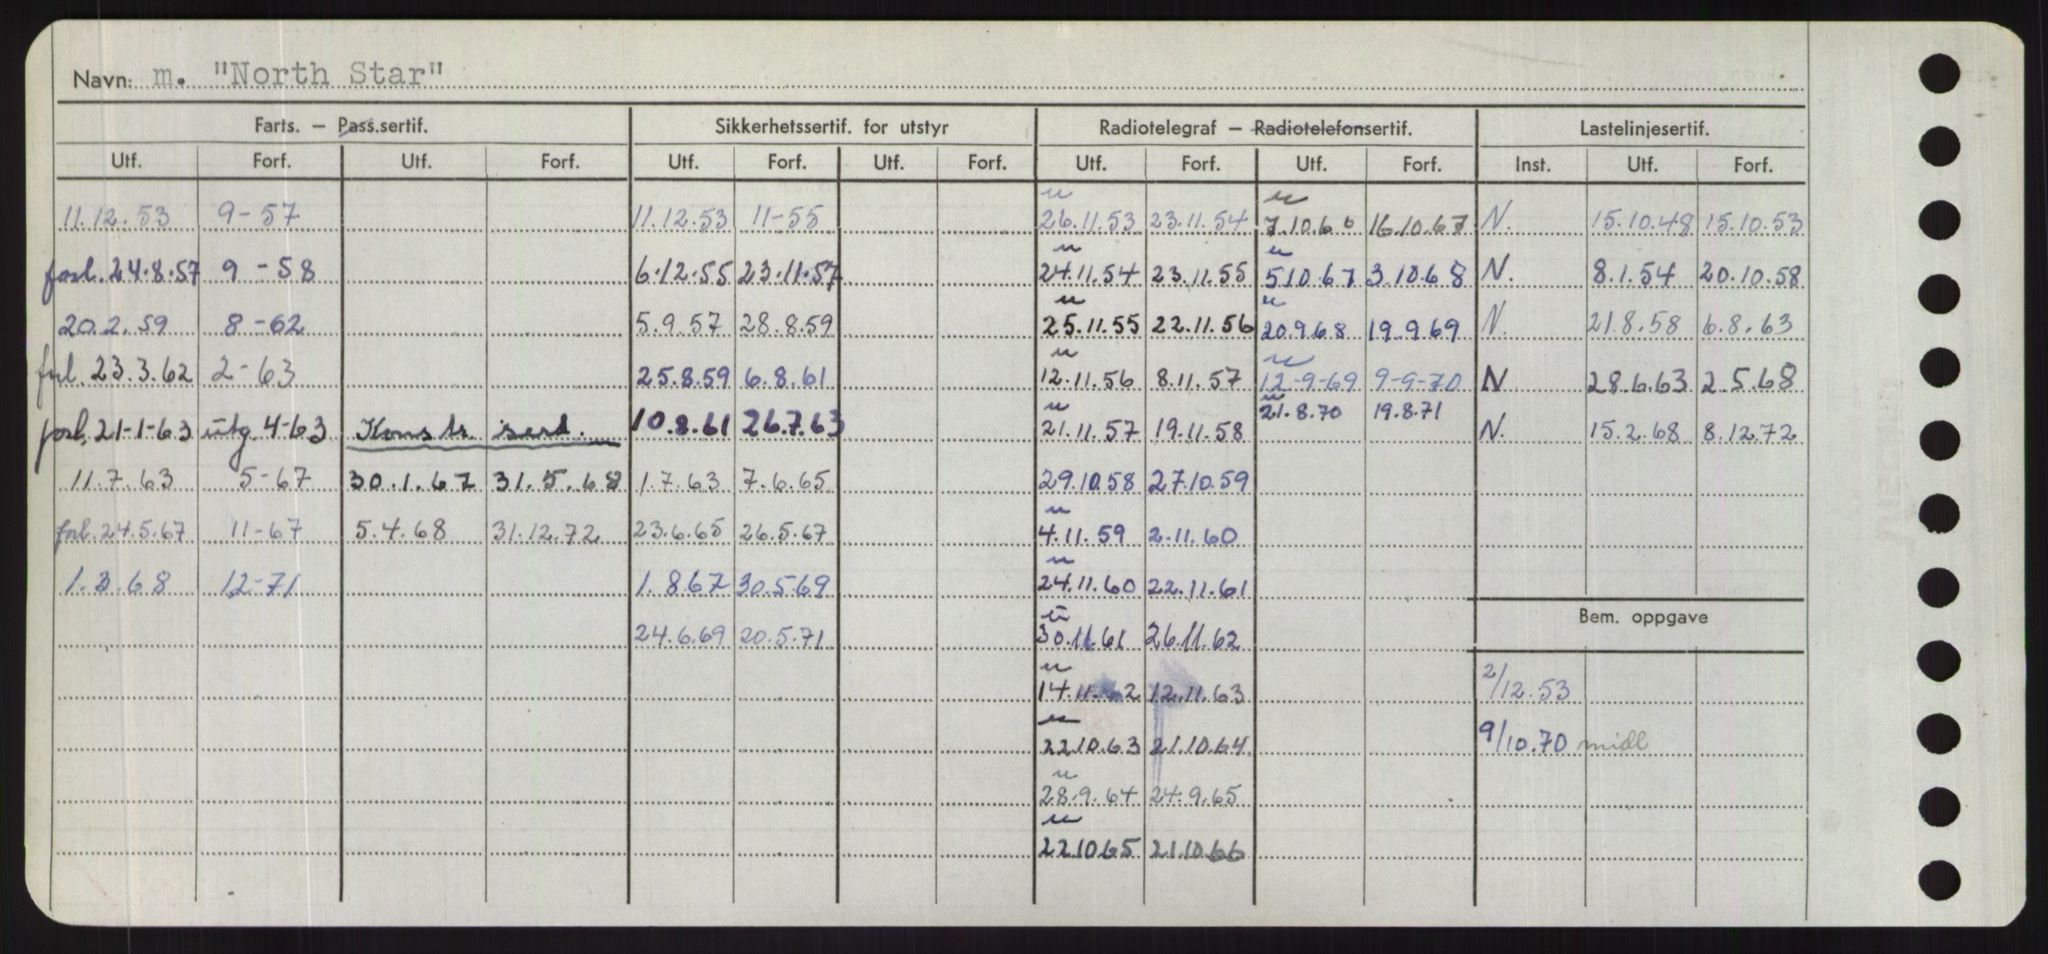 Navn: m. "North Star"
Farts. – Pass.sertif. Sikkerhetssertif. for utstyr Radiotelegraf – Radiotelefonsertif. Lastelinjesertif.
Utf. Forf. Utf. Forf. Utf. Forf. Utf. Forf. Utf. Forf. Utf. Forf. Inst. Utf. Forf.
u u
11.12.53 9-57 11.12.53 11-55 26.11.53 23.11.54 7.10.66 16.10.67 N. 15.10.48 15.10.53
u u
forl. 24.8.57 9-58 6.12.55 23.11.57 24.11.54 23.11.55 5.10.67 3.10.68 N. 8.1.54 20.10.58
u u
20.2.59 8-62 5.9.57 28.8.59 25.11.55 22.11.56 20.9.68 19.9.69 N. 21.8.58 6.8.63
u u
forl. 23.3.62 2-63 25.8.59 6.8.61 12.11.56 8.11.57 12-9-69 9-9-70 N 28.6.63 2.5.68
u u
forl. 21-1-63 utg. 4-63 Konstr. sert. 10.8.61 26.7.63 21.11.57 19.11.58 21.8.70 19.8.71 N. 15.2.68 8.12.72
11.7.63 5-67 30.1.67 31.5.68 1.7.63 7.6.65 29.10.58 27.10.59
u
forl. 24.5.67 11-67 5.4.68 31.12.72 23.6.65 26.5.67 4.11.59 2.11.60
u
1.3.68 12-71 1.8.67 30.5.69 24.11.60 22.11.61
u
Bem. oppgave
24.6.69 20.5.71 30.11.61 26.11.62
u
14.11.62 12.11.63 2/12.53
u
22.10.63 21.10.64 9/10.70 midl
u
28.9.64 24.9.65
u
22.10.65 21.10.66